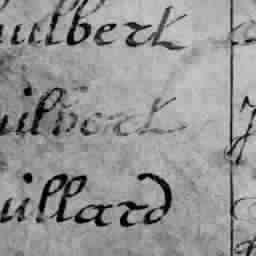 uilbert
uilbert
uillard